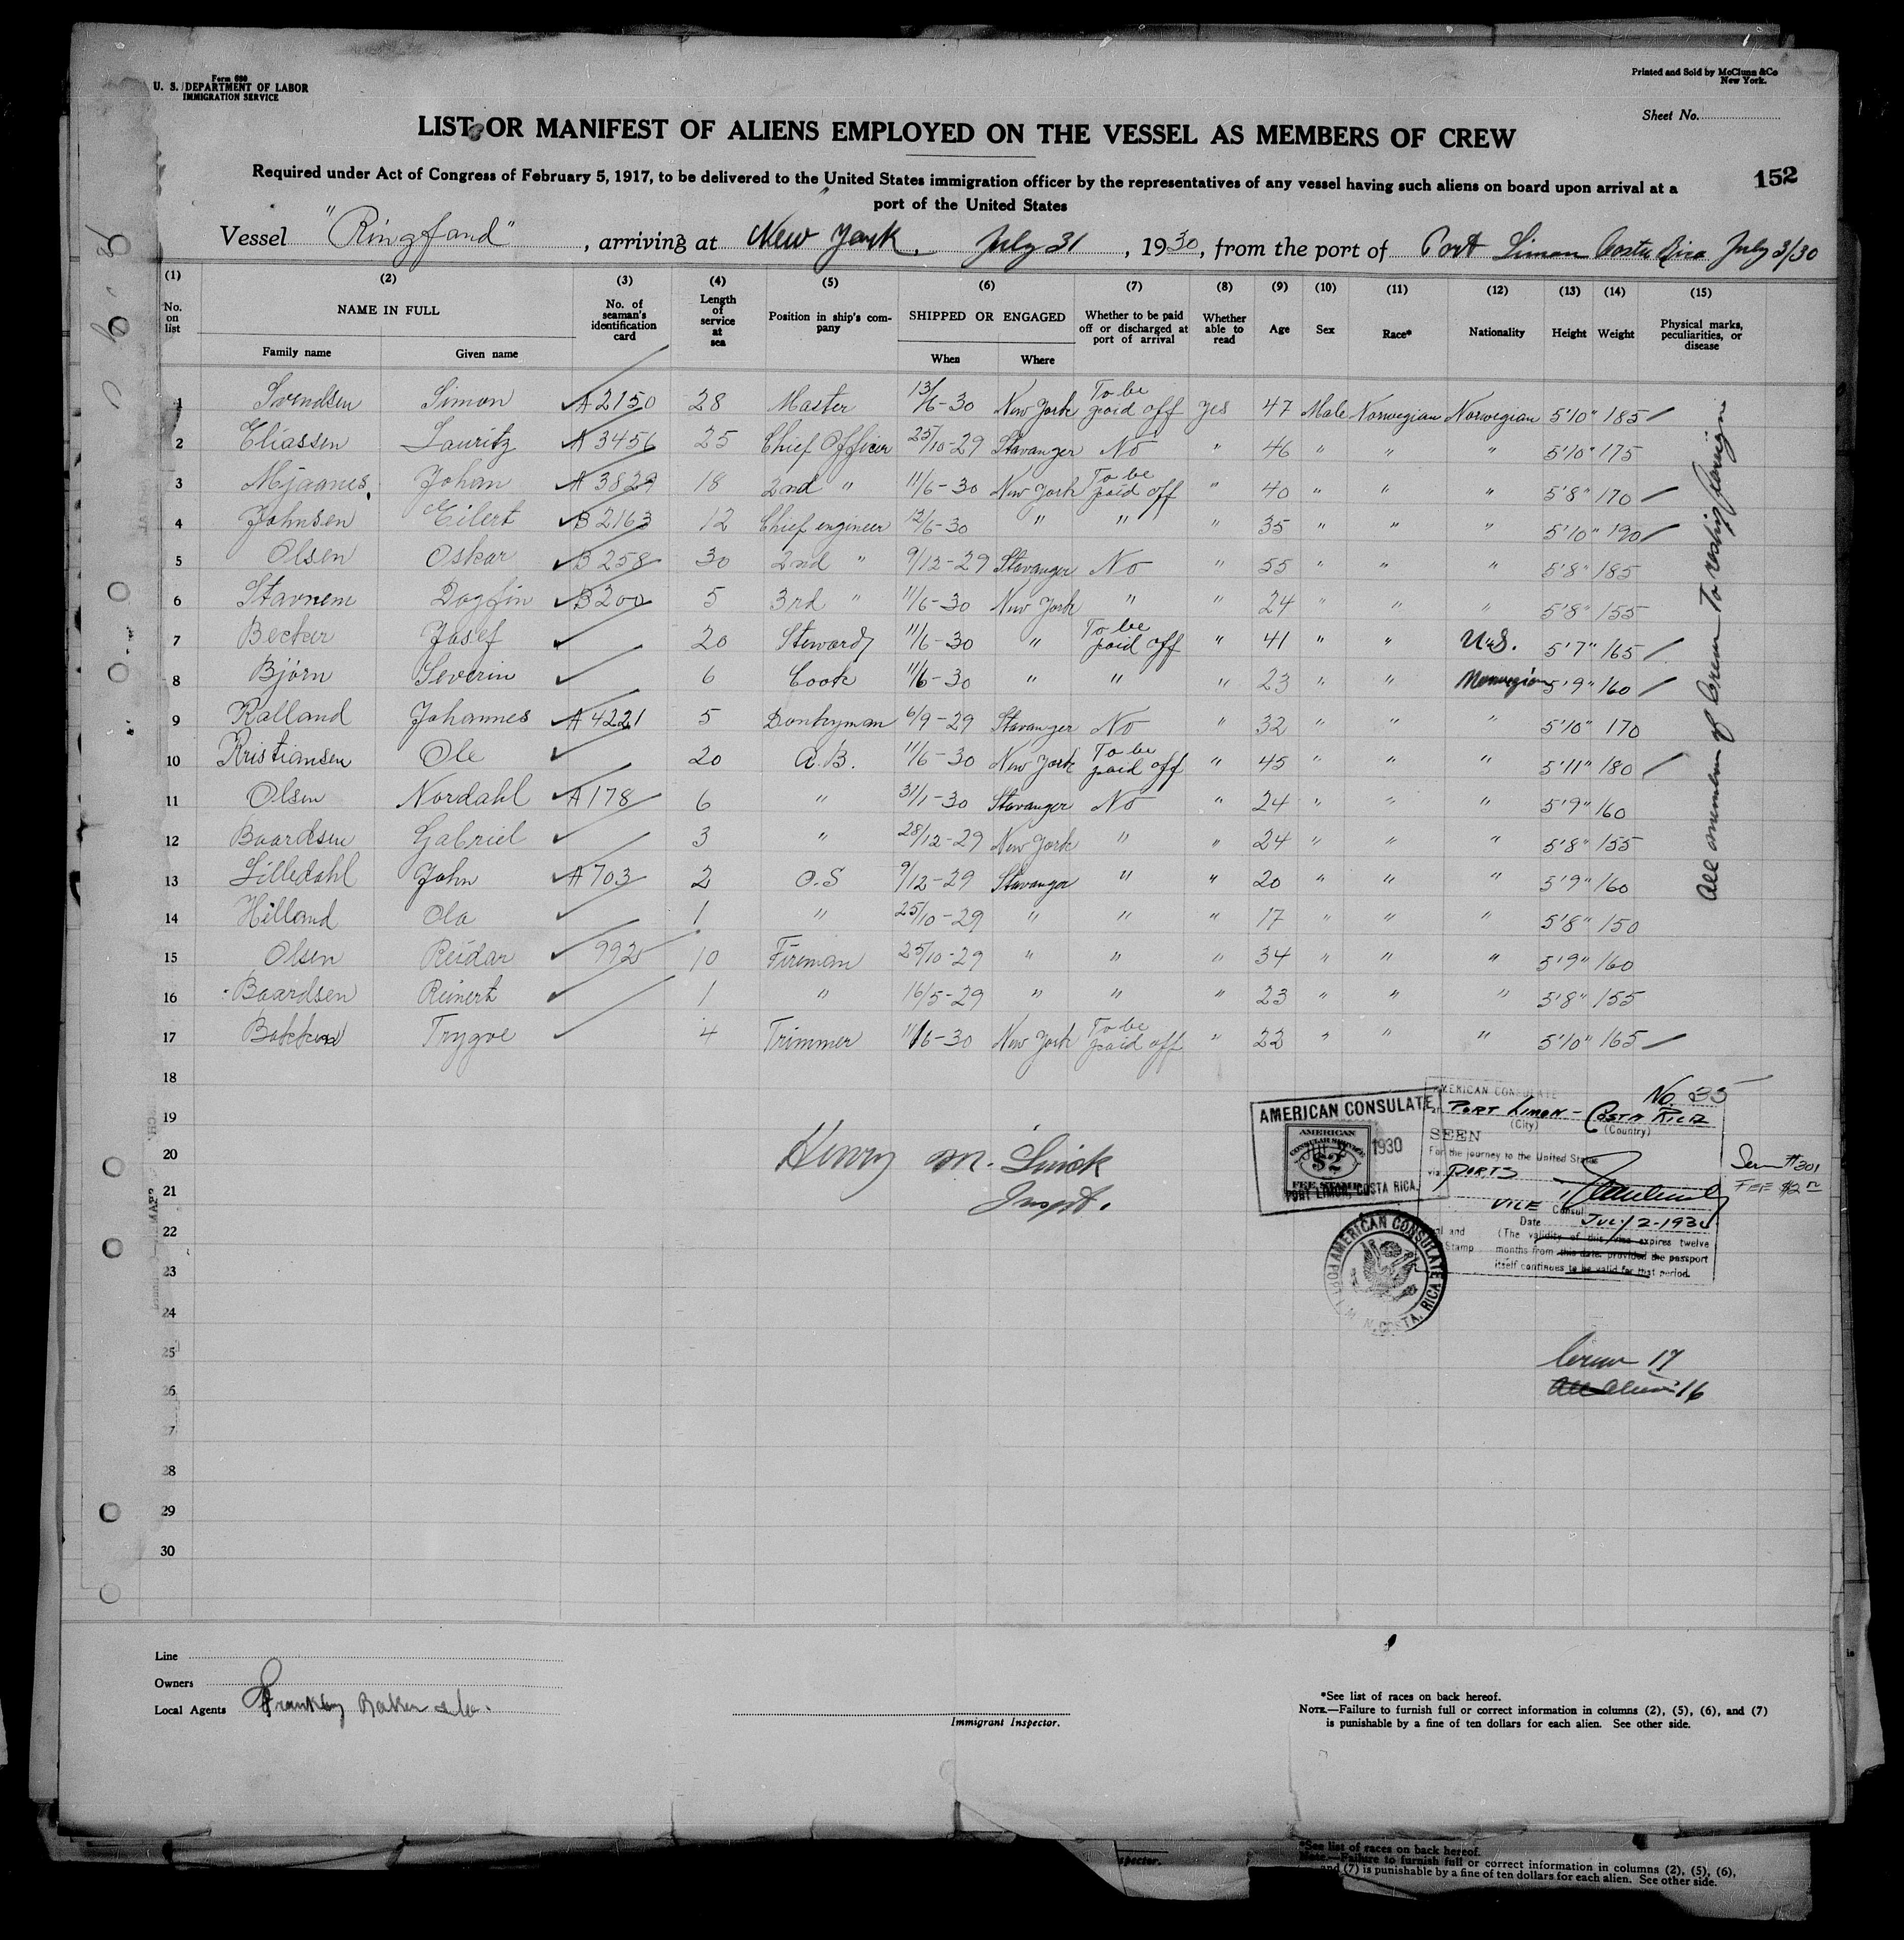 Form 680
U. S. DEPARTMENT OF LABOR
IMMIGRATION SERVICE
Printed and Sold by McClunn & Co
New York.
Sheet No.
LIST OR MANIFEST OF ALIENS EMPLOYED ON THE VESSEL AS MEMBERS OF CREW
152
Required under Act of Congress of February 5, 1917, to be delivered to the United States immigration officer by the representatives of any vessel having such aliens on board upon arrival at a
port of the United States
Vessel "Ringfond", arriving at New York, July 31, 1930, from the port of Port Limon Costa Rica July 3/30
(1) (2) (3) (4) (5) (6) (7) (8) (9) (10) (11) (12) (13) (14) (15)
No. on list NAME IN FULL No. of seaman's identification card Length of service at sea Position in ship's company SHIPPED OR ENGAGED Whether to be paid off or discharged at port of arrival Whether able to read Age Sex Race* Nationality Height Weight Physical marks, peculiarities, or disease
Family name Given name When Where
1 Svendsen Simon A 2150 28 Master 13/6-30 New York To be paid off yes 47 Male Norwegian Norwegian 5'10" 185
2 Eliassen Lauritz A 3456 25 Chief Officer 25/10-29 Stavanger No " 46 " " " 5'10" 175
3 Mjaanes Johan A 3829 18 2nd " 11/6-30 New York To be paid off " 40 " " " 5'8" 170
4 Johnsen Eilert B 2163 12 Chief engineer 12/6-30 " " " 35 " " " 5'10" 190
5 Olsen Oskar B 258 30 2nd " 9/12-29 Stavanger No " 55 " " " 5'8" 185
6 Stavnem Dagfin B 200 5 3rd " 11/6-30 New York " " 24 " " " 5'8" 155
7 Becker Josef 20 Steward 11/6-30 " To be paid off " 41 " " U.S. 5'7" 165
8 Bjørn Severin 6 Cook 11/6-30 " " " 23 " " Norwegian 5'9" 160
9 Kalland Johannes A 4221 5 Donkeyman 6/9-29 Stavanger No " 32 " " " 5'10" 170
10 Kristiansen Ole 20 A.B. 11/6-30 New York To be paid off " 45 " " " 5'11" 180
11 Olsen Nordahl A 178 6 " 31/1-30 Stavanger No " 24 " " " 5'9" 160
12 Baardsen Gabriel 3 " 28/12-29 New York " " 24 " " " 5'8" 155
13 Lilledahl John A 703 2 O.S 9/12-29 Stavanger " " 20 " " " 5'9" 160
14 Hilland Ola 1 " 25/10-29 " " " 17 " " " 5'8" 150
15 Olsen Reidar 992 10 Fireman 25/10-29 " " " 34 " " " 5'9" 160
16 Baardsen Reinert 1 " 16/5-29 " " " 23 " " " 5'8" 155
17 Bakken Trygve 4 Trimmer 11/6-30 New York To be paid off " 22 " " " 5'10" 165
18
19
20
21
22
23
24
25
26
27
28
29
30
All members of Crew To reship foreign
Henry M.
Inspt.
AMERICAN CONSULATE
AMERICAN
CONSULAR SERVICE
$2
FEE STAMP
1930
PORT LIMON, COSTA RICA.
AMERICAN CONSULATE
No. 35
PORT LIMON - COSTA RICA
(City) (Country)
SEEN
For the journey to the United States
via PORTS
VICE Consul
Date JULY 2-1930
(The validity of this visa expires twelve
months from this date, provided the passport
itself continues to be valid for that period.
Seal and
Stamp
Serv #301
FEE $2
AMERICAN CONSULATE PORT LIMON, COSTA RICA
Crew 17
All Aliens 16
Line
Owners
Local Agents Franklin Baker & Co.
Immigrant Inspector.
*See list of races on back hereof.
NOTE.—Failure to furnish full or correct information in columns (2), (5), (6), and (7)
is punishable by a fine of ten dollars for each alien. See other side.
spector.
*See list of races on back hereof.
NOTE.—Failure to furnish full or correct information in columns (2), (5), (6),
and (7) is punishable by a fine of ten dollars for each alien. See other side.